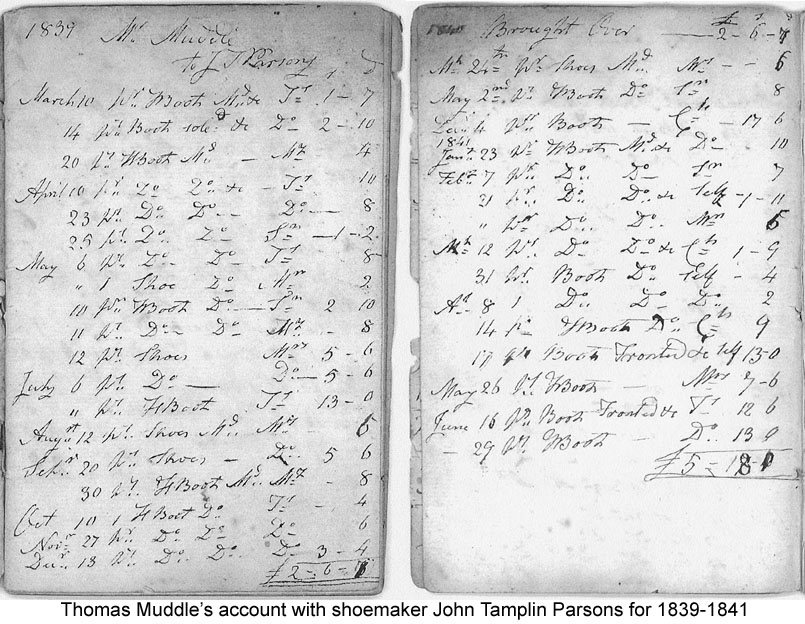 1839 Mr. Muddle
to J T Parsons s d
March 10 Pr. H Boots Md. &c Ts 1 - 7
14 Pr. Boots soled &c Do 2 - 10
20 Pr. H Boots Md. - Mr 4
April 10 Pr. Do Do &c - Ts 10
23 Pr. Do Do - Do - 8
25 Pr. Do Do Sn - 1 - 2
May 6 Pr. Do Do Ts 8
" 1 Shoe Do Mn 2
10 Pr. Boots Do - Sn 2 10
11 Pr. Do - Do Mr - 8
12 Pr. Shoes Mrs 5 - 6
July 6 Pr. Do - Do - 5 - 6
" Pr. H Boots Ts 13 - 0
Augst 12 Pr. Shoes Md. Mr 6
Sepr 20 Pr. Shoes - Do. 5 6
30 Pr. H Boots Md. Mr - 8
Oct 10 1 H Boot Do Ts - 4
Novr 27 Pr. Do Do Do 6
Decr 13 Pr. Do Do Do 3 - 4
£2 - 6 - 7
1840 Brought Over - £2 s6 d7
Mh 24th Pr. Shoes Md. Mrs - - 6
May 2nd Pr. Boots Do Sn 8
Decr 4 Pr. Boots - Chs - 17 6
1841
Janr. 23 Pr. Boots Md. &c Do 10
Febr. 7 Pr. Do. Do. Sn 7
21 Pr. Do. Do. &c Self - 1 - 11
" Pr. Do. Do. Mn 6
Mh 12 Pr. Do Do &c Chs 1 - 9
31 Pr. Boots Do Self - 4
Al 8 1 Do. Do Do 2
14 Pr. H Boots Do. Chs 9
17 Pr. Boots Fronted &c Self 13-0
May 26 Pr. H Boots - Mrs 7-6
June 16 Pr. Boots Fronted &c Ts 12 6
- 29 Pr. Boots - Do. 13 9
£5 - 18 - 1
Thomas Muddle's account with shoemaker John Tamplin Parsons for 1839-1841